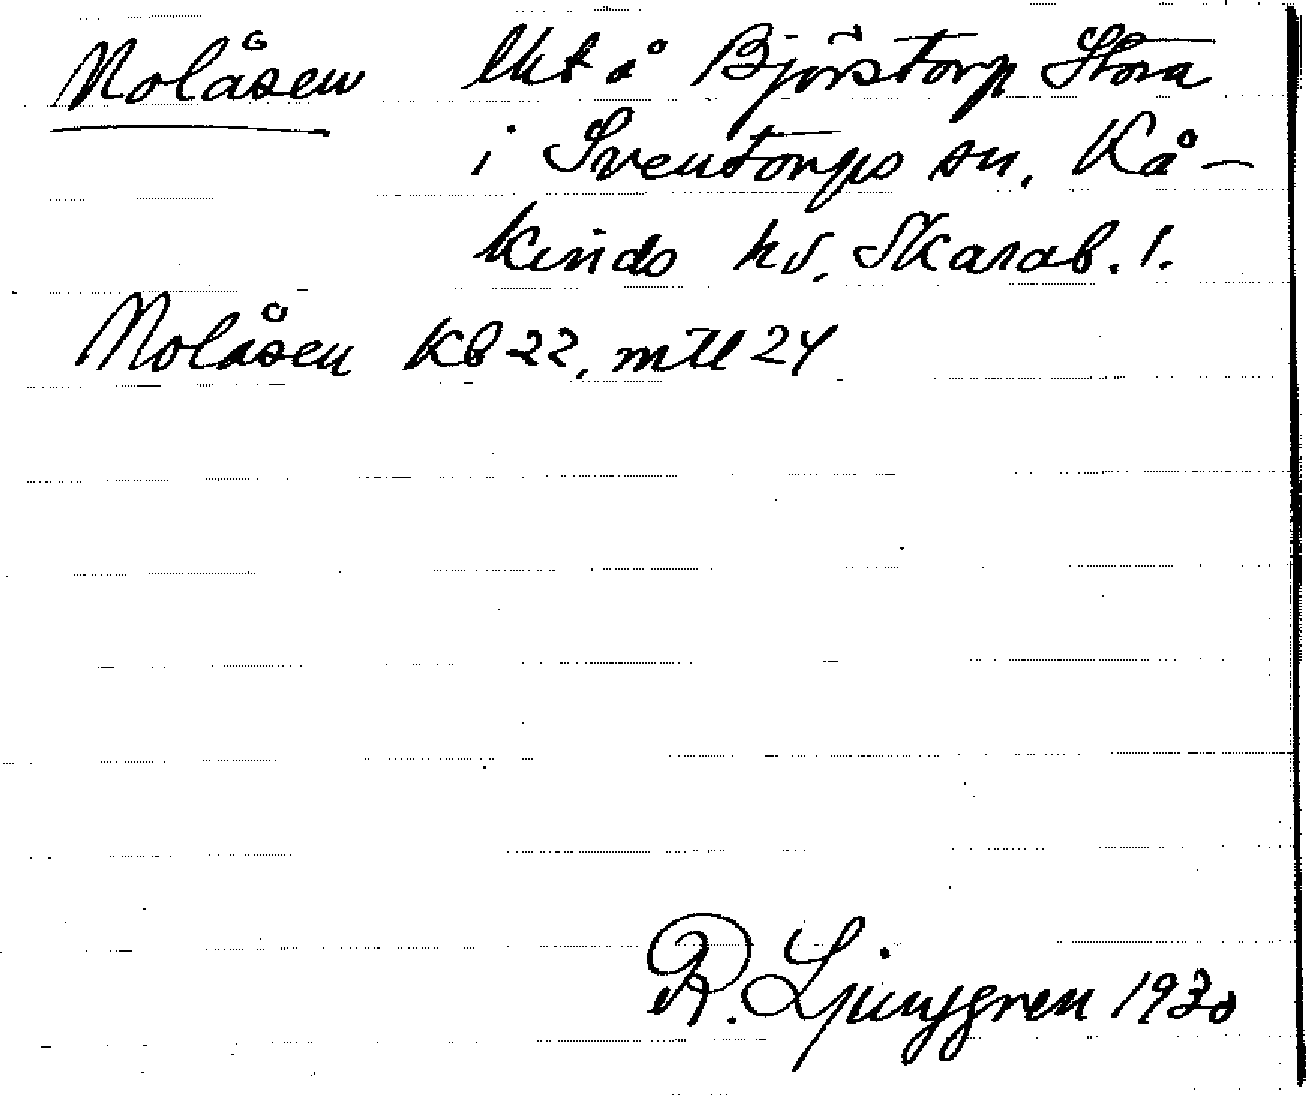 Nolåsen lht å Björstorp Stora
i Sventorps sn. Kå-
kinds hd. Skarab. l.
Nolåsen Kb 22, mtl 24
R. Ljunggren 1930